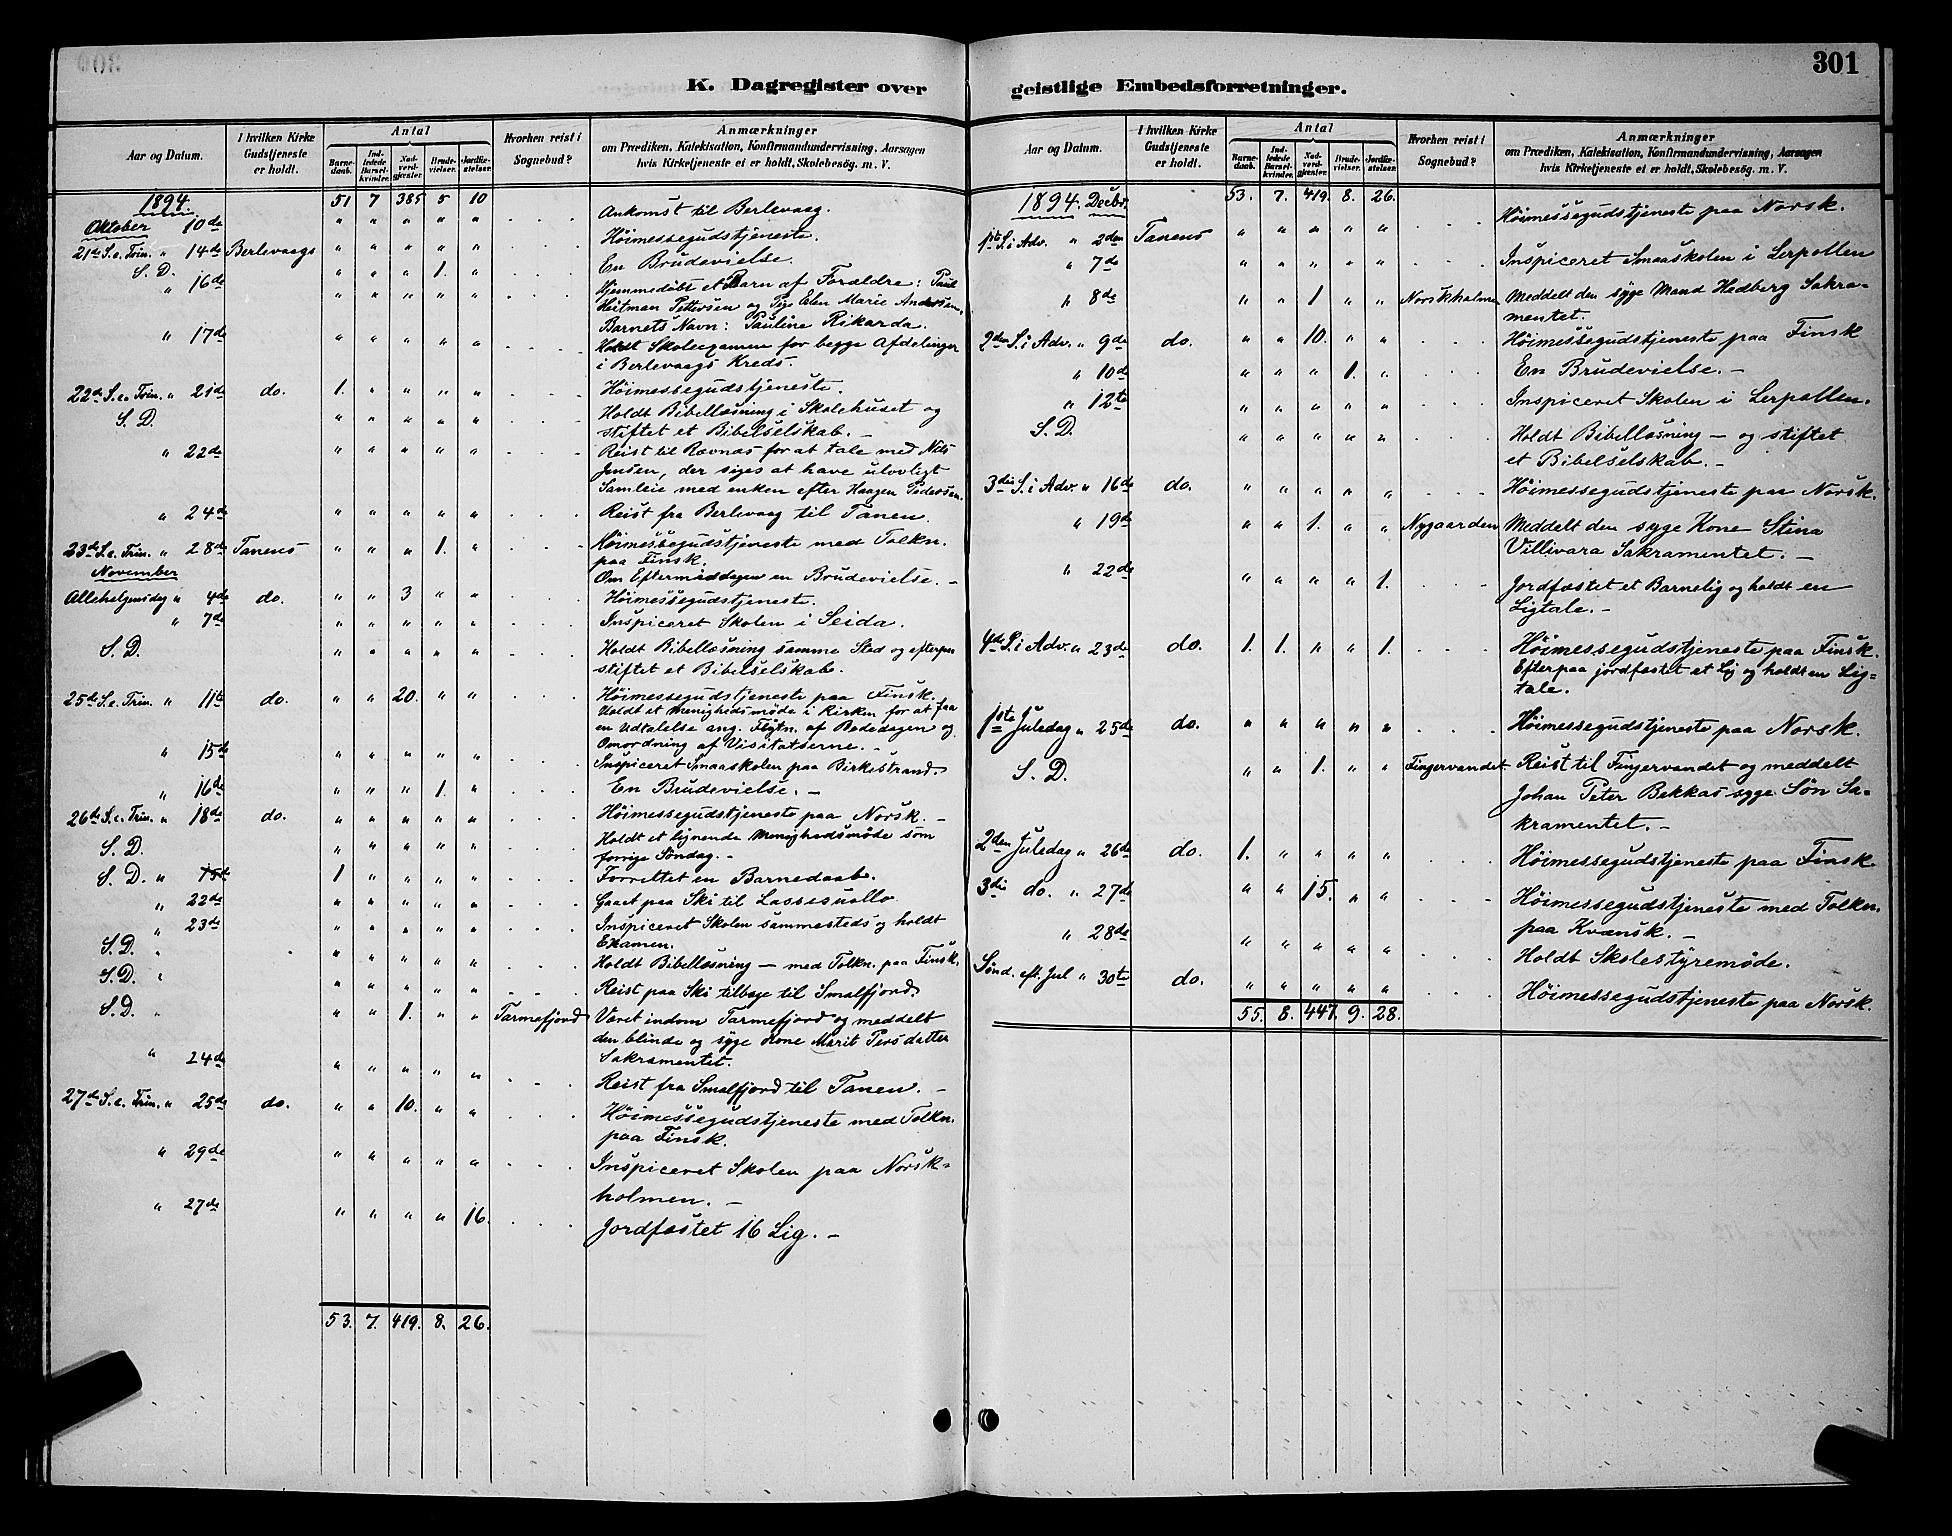 301
K. Dagregister over geistlige Embedsforretninger.
Aar og Datum.
I hvilken Kirke Gudstjeneste er holdt.
Antal
Barne-daab.
Ind-ledede Barsel-kvinder.
Nad-verd-gjæster.
Brude-vielser.
Jordfæ-stelser.
Hvorhen reist i Sognebud?
Anmærkninger
om Prædiken, Katekisation, Konfirmandundervisning, Aarsagen
hvis Kirketjeneste ei er holdt, Skolebesøg. m. V.
1894. 51 7 385 5 10
Oktober 10de " " " " " Ankomst til Berlevaag.
21de S. e. Trin. " 14de Berlevaags " " " " " Høimessegudstjeneste.
S. D. " " " 1. " En Brudevielse.
" 16de " " " " " Hjemmedøbt et Barn af Forældre: Paul
Heitman Pettersen og Pige Elen Marie Andersen.
Barnets Navn: Pauline Rikarda.
" 17de " " " " " Holdt Skoleexamen for begge Afdelinger
i Berlevaags Kreds.
22de S. e. Trin. " 21de do. 1. " " " " Høimessegudstjeneste.
S. D. " " " " " Holdt Bibellæsning i Skolehuset og
stiftet et Bibelselskab. —
" 22de " " " " " Reist til Ravnæs for at tale med Nils
Jensen, der siges at have ulovligt
Samleie med enken efter Haagen Pedersen.
" 24de " " " " " Reist fra Berlevaag til Tanen.
23de S. e. Trin. " 28de Tanens " " " 1. " Høimessegudstjeneste med Tolkn.
paa Finsk.
Om Eftermiddagen en Brudevielse. —
November
Allehelgensdag " 4de do. " " 3 " " Høimessegudstjeneste.
" 7de " " " " " Inspiceret Skolen i Seida.
S. D. " " " " " Holdt Bibellæsning samme Sted og efterpaa
stiftet et Bibelselskab.
25de S. e. Trin. " 11te do. " " 20. " " Høimessegudstjeneste paa Finsk.
Holdt et Menighedsmøde i Kirken for at faa
en Udtalelse ang. Flytn. af Bededagen og
Omordning af Visitatserne. —
" 15de " " " " " Inspiceret Smaaskolen paa Birkestrand.
" 16de " " " 1. " En Brudevielse. —
26de S. e. Trin. " 18de do. " " " " " Høimessegudstjeneste paa Norsk. —
S. D. " " " " " Holdt et lignende Menighedsmøde som
forrige Søndag. —
S. D. " 1 " " " " Forrettet en Barnedaab.
" 22de " " " " " Gaaet paa Ski til Lassesuollo.
" 23de " " " " " Inspiceret Skolen sammesteds og holdt
Examen.
S. D. " " " " " " Holdt Bibellæsning — med Tolkn. paa Finsk.
S. D. " " " " " " Reist paa Ski tilbage til Smalfjord.
S. D. " " " 1. " " Tarmefjord Været indom Tarmefjord og meddelt
den blinde og syge Kone Marit Persdatter
Sakramentet.
" 24de " " " " " Reist fra Smalfjord til Tanen. —
27de S. e. Trin. " 25de do. " " 10. " " Høimessegudstjeneste med Tolkn.
paa Finsk.
" 29de " " " " " Inspiceret Skolen paa Norsk-
holmen. —
" 27de " " " " 16. Jordfæstet 16 Lig. —
53. 7. 419. 8. 26.
Aar og Datum.
I hvilken Kirke Gudstjeneste er holdt.
Antal
Barne-daab.
Ind-ledede Barsel-kvinder.
Nad-verd-gjæster.
Brude-vielser.
Jordfæ-stelser.
Hvorhen reist i Sognebud?
Anmærkninger
om Prædiken, Katekisation, Konfirmandundervisning, Aarsagen
hvis Kirketjeneste ei er holdt, Skolebesøg. m. V.
1894. Decbr. 53. 7. 419. 8. 26.
1ste S. i Adv. " 2den Tanens " " " " " Høimessegudstjeneste paa Norsk.
" 7de " " " " " Inspiceret Smaaskolen i Lerpollen
" 8de " " 1 " " Norskholmen Meddelt den syge Mand Hedberg Sakra-
mentet.
2den S. i Adv. " 9de do. " " 10. " " Høimessegudstjeneste paa Finsk
" 10de " " " 1. " En Brudevielse. —
" 12te " " " " " Inspiceret Skolen i Lerpollen.
S. D. " " " " " Holdt Bibellæsning — og stiftet
et Bibelselskab. —
3die S. i Adv. " 16de do. " " " " " Høimessegudstjeneste paa Norsk.
" 19de " " 1. " " Nygaarden Meddelt den syge Kone Stina
Villivara Sakramentet. —
" 22de " " " " 1. Jordfæstet et Barnelig og holdt en
Ligtale. —
4de S. i Adv. " 23de do. 1. 1. " " 1. Høimessegudstjeneste paa Finsk.
Efterpaa jordfæstet et Lig og holdt en Lig-
tale.
1ste Juledag " 25de do. " " " " " Høimessegudstjeneste paa Norsk.
S. D. " " 1. " " Fingervandet Reist til Fingervandet og meddelt
Johan Peter Bekkas syge Søn Sa-
kramentet. —
2den Juledag " 26de do. 1. " " " " Høimessegudstjeneste paa Finsk
3die do. " 27de " " 15. " " Høimessegudstjeneste med Tolkn.
paa Kvænsk. —
" 28de " " " " " Holdt Skolestyremøde.
Sønd. eft. Jul " 30te do. " " " " " Høimessegudstjeneste paa Norsk.
55. 8. 447. 9. 28.